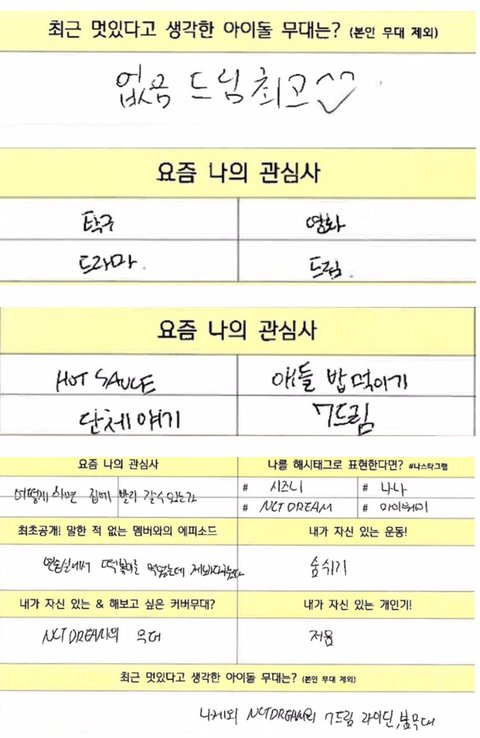 최근 멋있다고 생각한 아이돌 무대는? (본인 무대 제외)
없음 드림 최고^^
요즘 나의 관심사
탁구 영화
드라마. 드림.
요즘 나의 관심사
HOT SAUCE 애들 밥먹이기
단체얘기 7드림
요즘 나의 관심사 나를 해시태그로 표현한다면? #나스타그램
어떻게 하면 집에 빨리 갈수있는가 # 시즈니 # 나나
# NCT DREAM #
최초공개! 말한 적 없는 멤버와의 에피소드 내가 자신 있는 운동!
연습실에서 떡볶이를 먹었는데 숨쉬기
내가 자신 있는 & 해보고 싶은 커버무대? 내가 자신 있는 개인기!
NCT DREAM의 무대 저음
최근 멋있다고 생각한 아이돌 무대는? (본인 무대 제외)
NCT DREAM의 7드림 라이딘, 붐무대